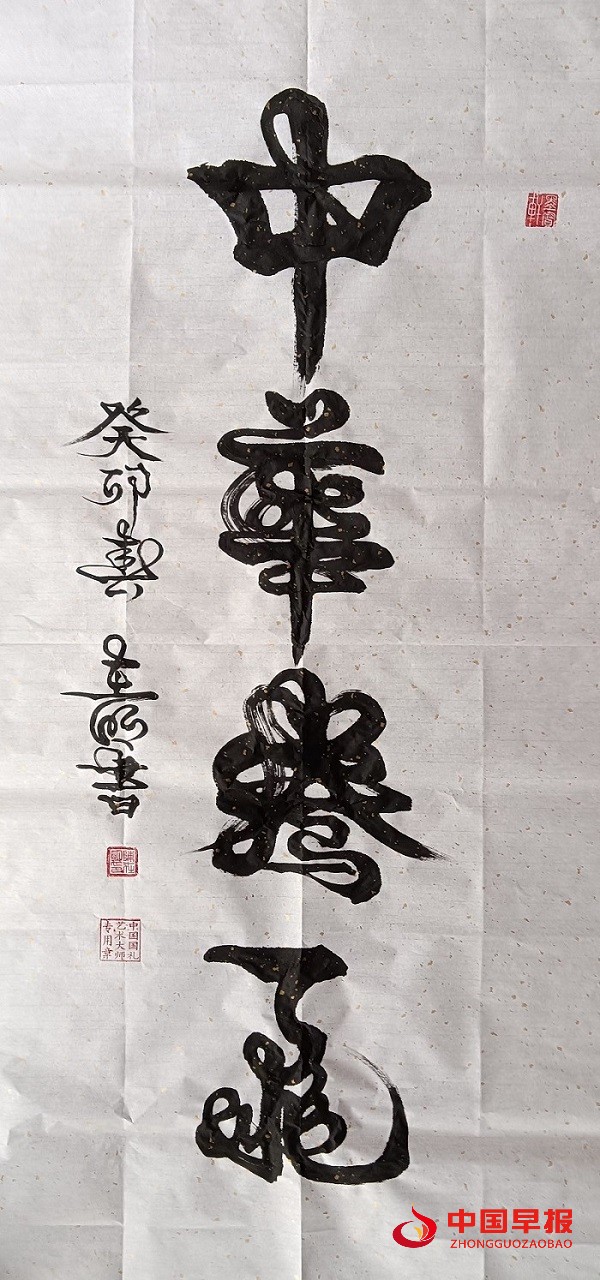 中華騰飛
癸卯 書
中国国礼
艺术大师
专用章
中国早报
ZHONGGUOZAOBAO